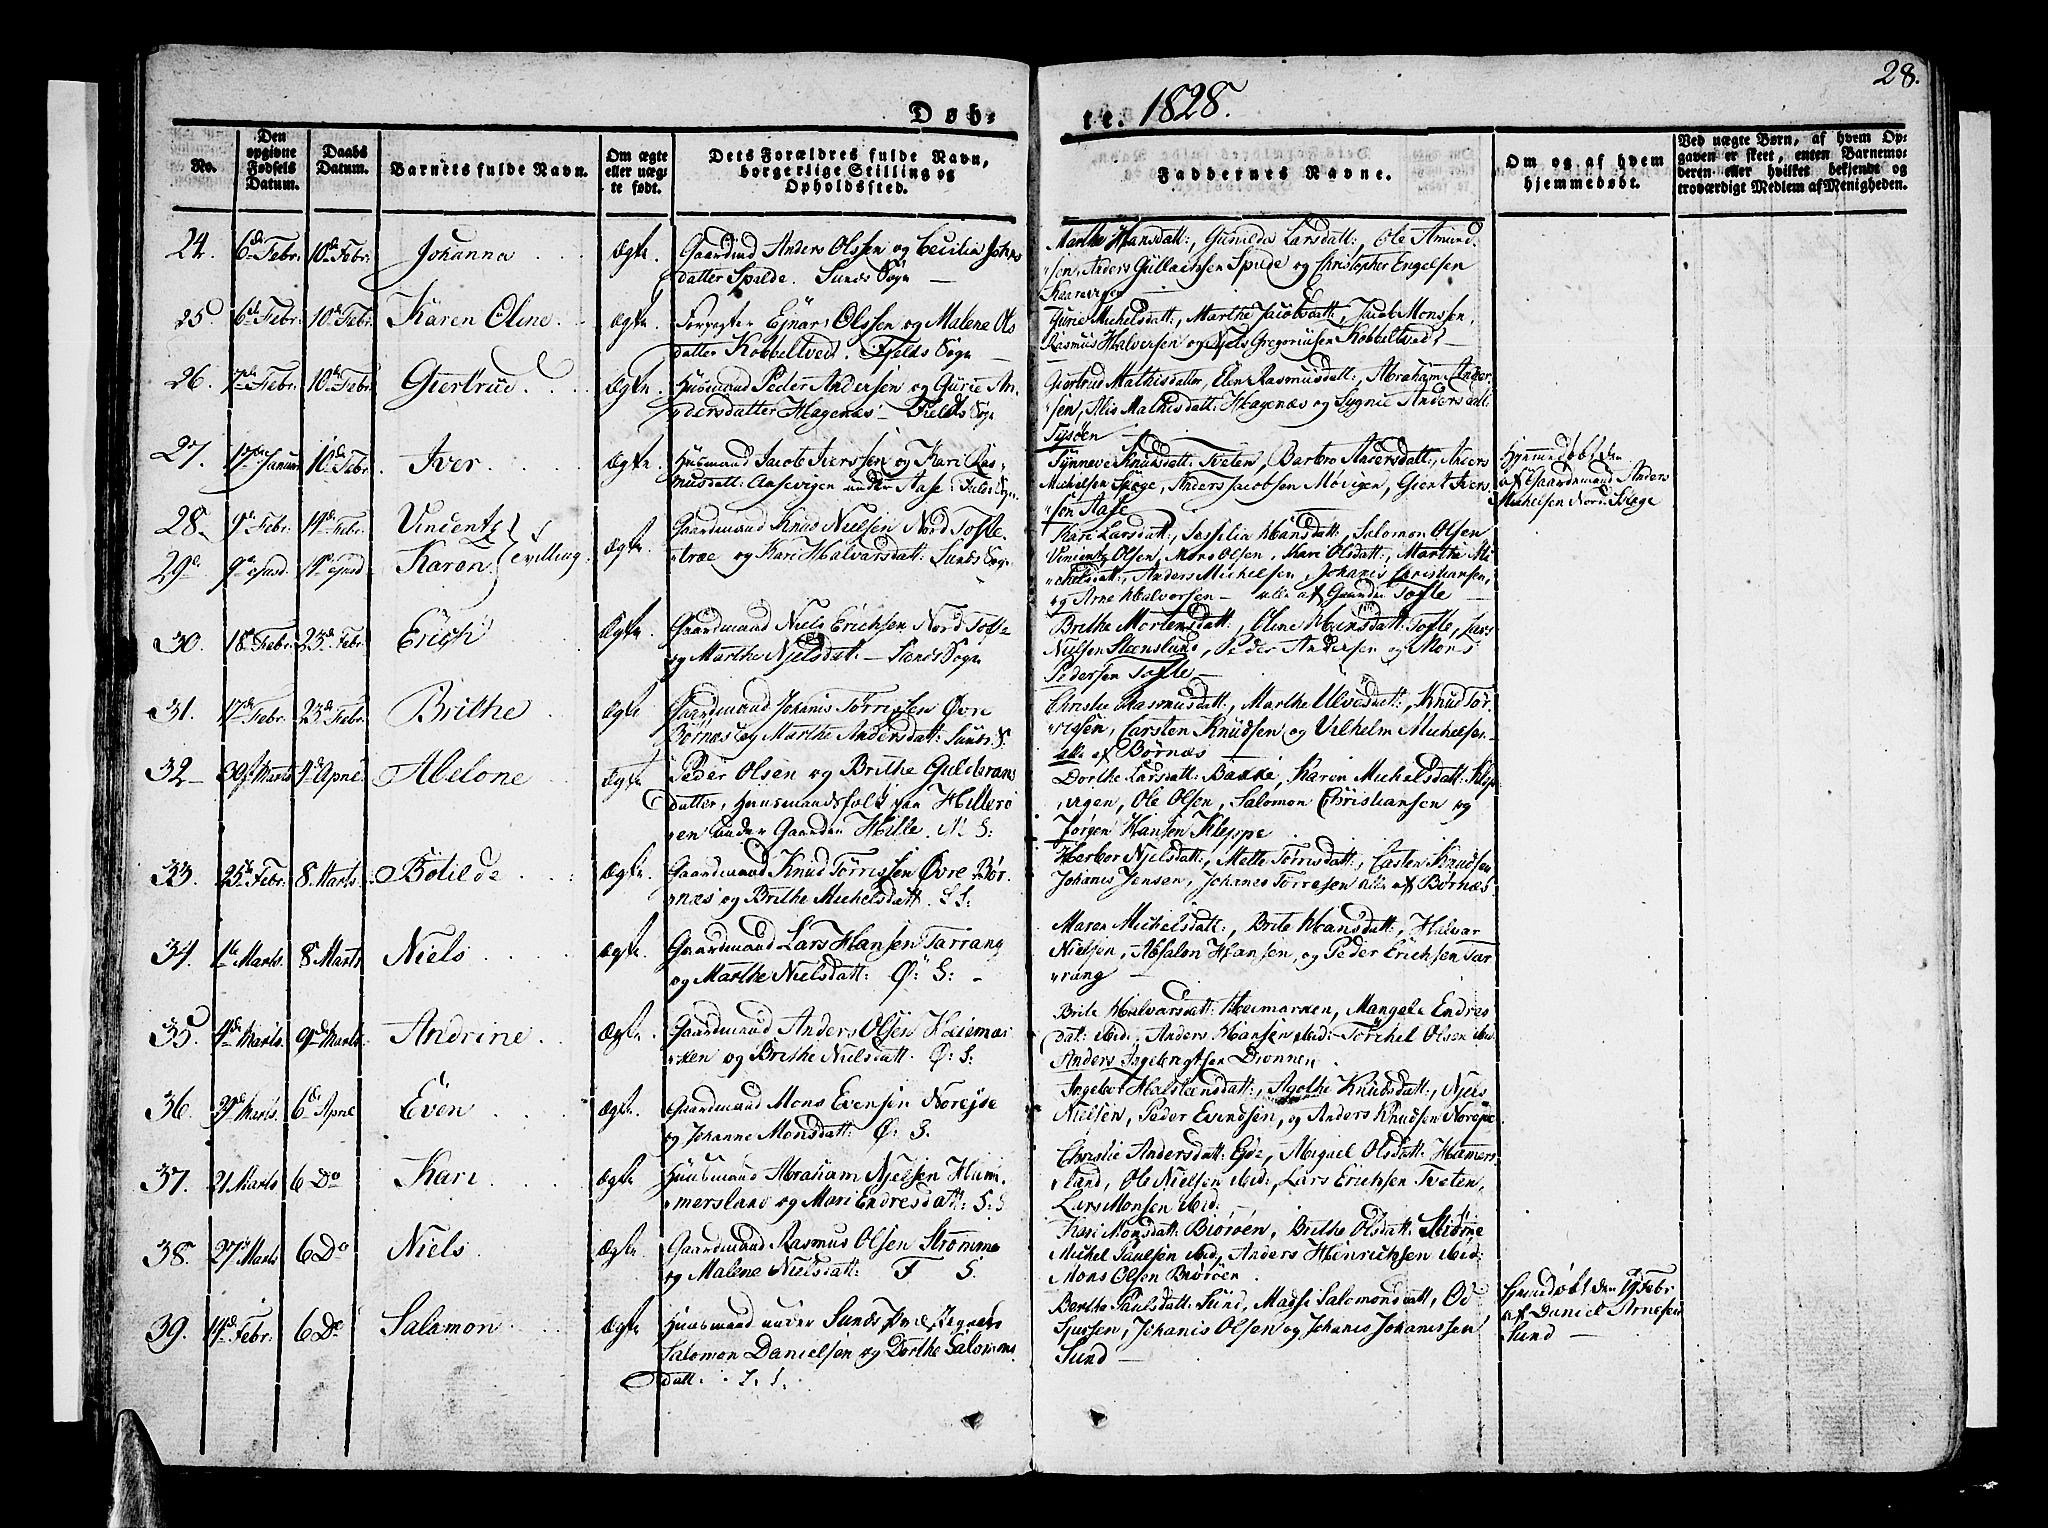 28.
Døb-
te. 1828.
No.
Den opgivne Fødsels Datum.
Daabs Datum.
Barnets fulde Navn.
Om ægte eller uægte født.
Dets Forældres fulde Navn, borgerlige Stilling og Opholdsted.
Faddernes Navne.
Om og af hvem hjemmedøbt.
Ved uægte Børn, af hvem Opgaven er skeet, enten Barnemoderen eller hvilket bekjendt og troværdigt Medlem af Menigheden.
24. 6de Febr. 10de Febr. Johanna Ægte.
Gaardmd Anders Olssen og Cecilia Johns
datter Spilde. Sunds Sogn
Marthe Hansdatt:, Gunilde Larsdatt:, Ole Amund
sen, Anders Gullachsen Spilde og Christopher Engelsen
25. 6de Febr. 10de Febr. Karen Oline Ægte.
Forpagter Ejnar Olssen og Malene Ols
datter Kobbeltvedt. Fjelds Sogn
Gurie Michelsdatt:, Marthe Jacobsdatt:, Jacob Monssen,
Rasmus Halversen og Niels Gregoriusen Kobbeltvedt
26. 7de Febr. 10de Febr. Giertrud Ægte.
Husmand Peder Andersen og Gurie An
dersdatter Hagenæs - Fields Sogn
Giertrud Mathisdatter, Elen Rasmusdatt:, Abraham Ander
sen, Alis Mathisdatt: Hagenæs og Sygnie Andersdatt:
Tysøen
27. 17de Januar 10de Febr. Iver Ægte.
Husmand Jacob Iverssen og Kari Ras
musdatt: Aasevigen under Aase. Fields Sogn
Synneve Knudsdatt: Tveten, Barbro Andersdatt:, Anders
Michelsen Spæge, Anders Jacobsen Movigen, Giert Ivers
sen Aase
Hjemmedøbt den
af Gaardmand Anders
Michelsen Nord: Spæge
28. 9de Febr. 14de Febr. Vincentz
29. 9de ejusd. 14de ejusd. Karen tvilling Ægte.
Gaardmand Knud Nielsen Nord Tofte
træe og Kari Halvarsdatt: Sunds Sogn
Kari Larsdatt:, Sesselia Hansdatt:, Salomon Olsen
Vincentz Olsen, Mons Olsen, Kari Olsdatt:, Marthe Mi
chelsdatt:, Anders Michelsen, Johanis Christiansen,
og Arne Halvorsen - alle af Gaarden Tofte
30. 18de Febr. 23de Febr. Erich Ægte.
Gaardmand Niels Erichsen Nord Tofte
og Marthe Njelsdat: - Sunds Sogn
Brithe Mortensdatt:, Oline Hansdatt: Tofte, Lars
Nielsen Steenslund, Peder Andersen og Mons
Pedersen Tofte
31. 17de Febr. 23de Febr. Brithe Ægte
Gaardmand Johanis Tørresen Øvre
Børnæs og Marthe Andersdatt: Sunds S.
Christie Rasmusdatt:, Marthe Ulvesdatt:, Knud Tør
resen, Carsten Knudsen og Vilhelm Michelsen
alle af Børnæs
32 30te Marts 4de April Abelone Ægte
Peder Olsen og Brithe Guldbrans
datter, Huusmandsfolk paa Hillerø
en under Gaarden Hille. M S:
Dorthe Larsdatt: Bakke, Karen Michelsdatt: Klep
vigen, Ole Olsen, Salomon Christiansen og
Jørgen Hansen Kleppe
33. 25de Febr. 8 Marts Botilde Ægte.
Gaardmand Knud Tørrissen Øvre Bør
næs og Brithe Michelsdatt. S S:
Herbor Njelsdatt:, Mette Tørrisdatt:, Casten Knudsen
Johanis Jensen, Johanes Tørresen alle af Børnæs
34. 1te Marts 8 Marts Niels Ægte.
Gaardmand Lars Hansen Tarrang
og Marthe Nielsdatt: Ø: S: -
Maren Michelsdatt:, Brite Hansdatt:, Halvar
Nielsen, Absalon Hansen, og Peder Erichsen Tar
rang
35 4de Marts 9de Marts Andrine Ægte.
Gaardmand Anders Olsen Heiemar
ken og Brithe Nielsdatt. Ø: S:
Brite Halvarsdatt: Heimarken, Mangele Endres
dat: ibid:, Anders Hansen ibid: Torchel Olsen ibid:
Anders Ingebrigtsen Dronnen
36 3de Marts. 6de April Even Ægte.
Gaardmand Mons Evensen Norejde
og Johanne Monsdatt: Ø: S.
Ingebor Halsteensdatt:, Agothe Knudsdatt:, Njels
Nielsen, Peder Evindsen, og Anders Knudsen Norejde
37. 21 Marts 6 Do Kari Ægte
Huusmand Abraham Njelsen Ham
mersland og Mari Endresdatt: S: S
Christie Andersdatt: Eide, Abigael Olsdatt: Hamers
land, Ole Nielsen ibid:, Lars Erichsen Tveten,
Lars Monsen ibid.
38. 27 Marts 6 Do Niels Ægte.
Gaardmand Rasmus Olsen Strømme
og Malene Nielsdatt: F S.
Kari Monsdatt: Biørøen, Brithe Olsdatt: Strømme
Michel Paulsen ibid, Anders Hinrichsen ibid:
Mons Olsen Biørøen
39. 14de Febr. 6 Do Salamon Ægte
Huusmand under Sunds
Salomon Danielsen og Dorthe Salomons
datt: S: S:
Berthe Paulsdatt: Sund, Madsi Salomonsdatt, Od
Sjursen, Johanis Olsen og Johanes Johanissen
Sund
Hjemmedøbt den 19 Febr
af Daniel Arnesen
Sund